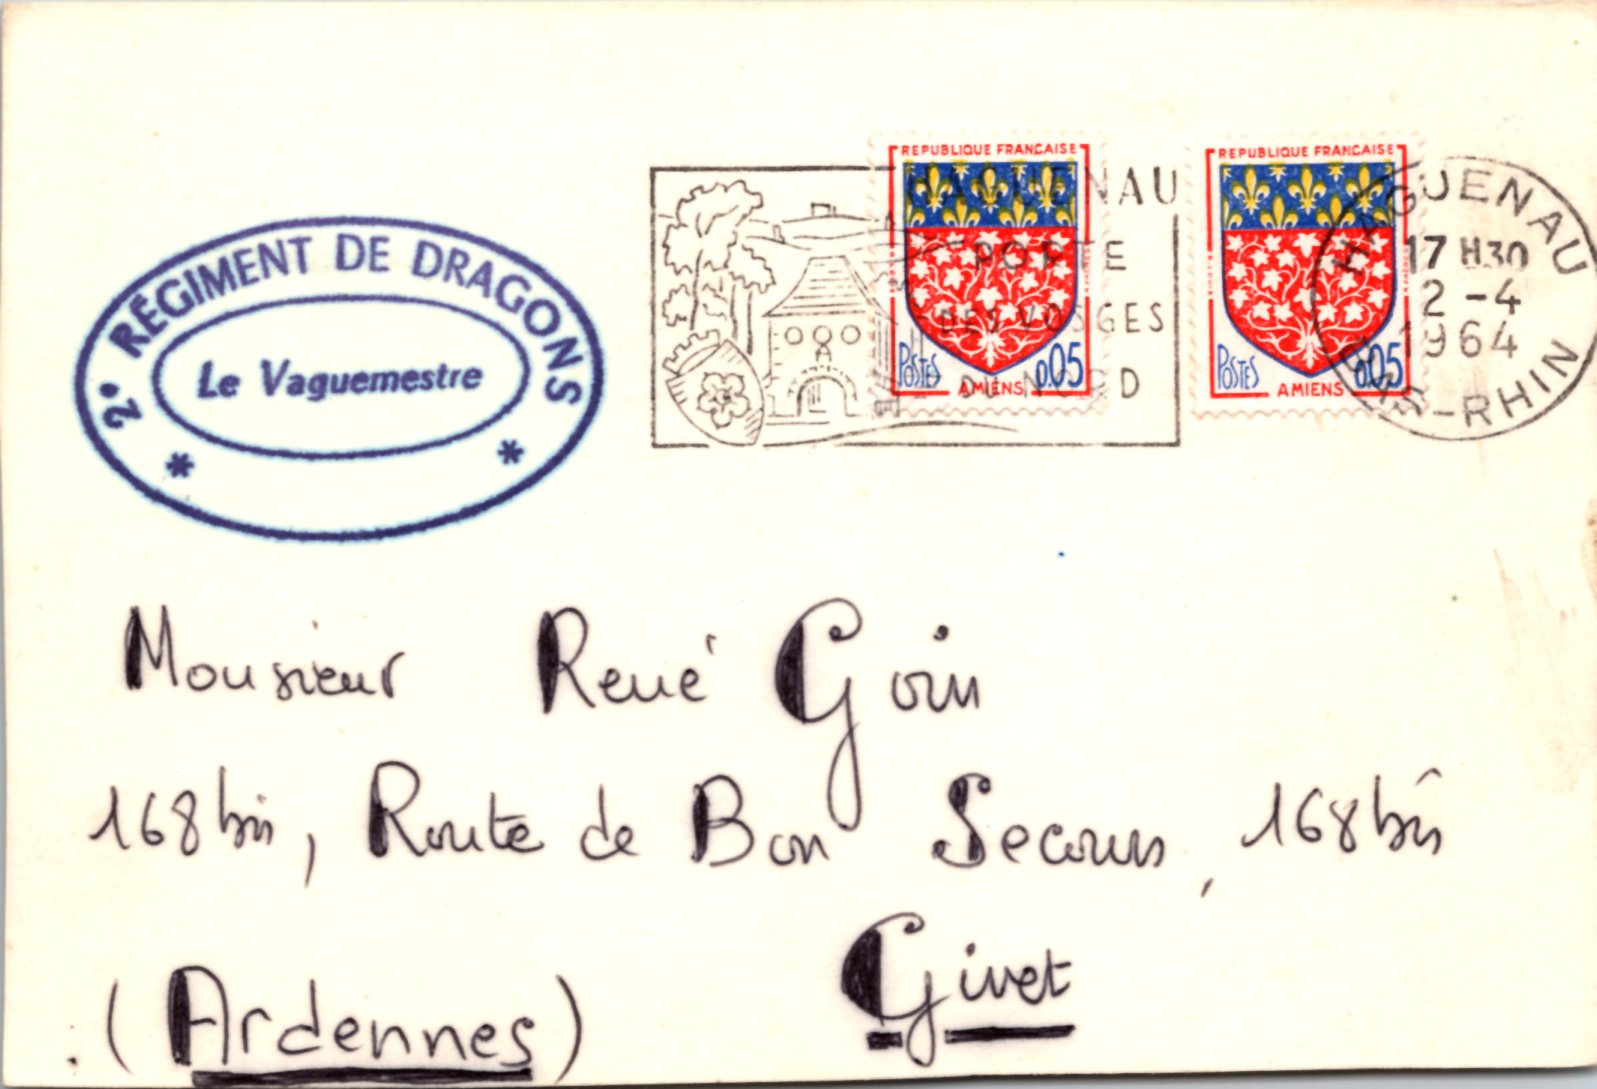 2e RÉGIMENT DE DRAGONS
Le Vaguemestre
* *
HAGUENAU
PORTE
DES VOSGES
DU NORD
REPUBLIQUE FRANCAISE
POSTES
0.05
AMIENS
REPUBLIQUE FRANCAISE
POSTES
0.05
AMIENS
HAGUENAU
17 H30
2 - 4
1964
BAS-RHIN
Monsieur René Goin
168 bis, Route de Bon Secours, 168 bis
Givet
(Ardennes)